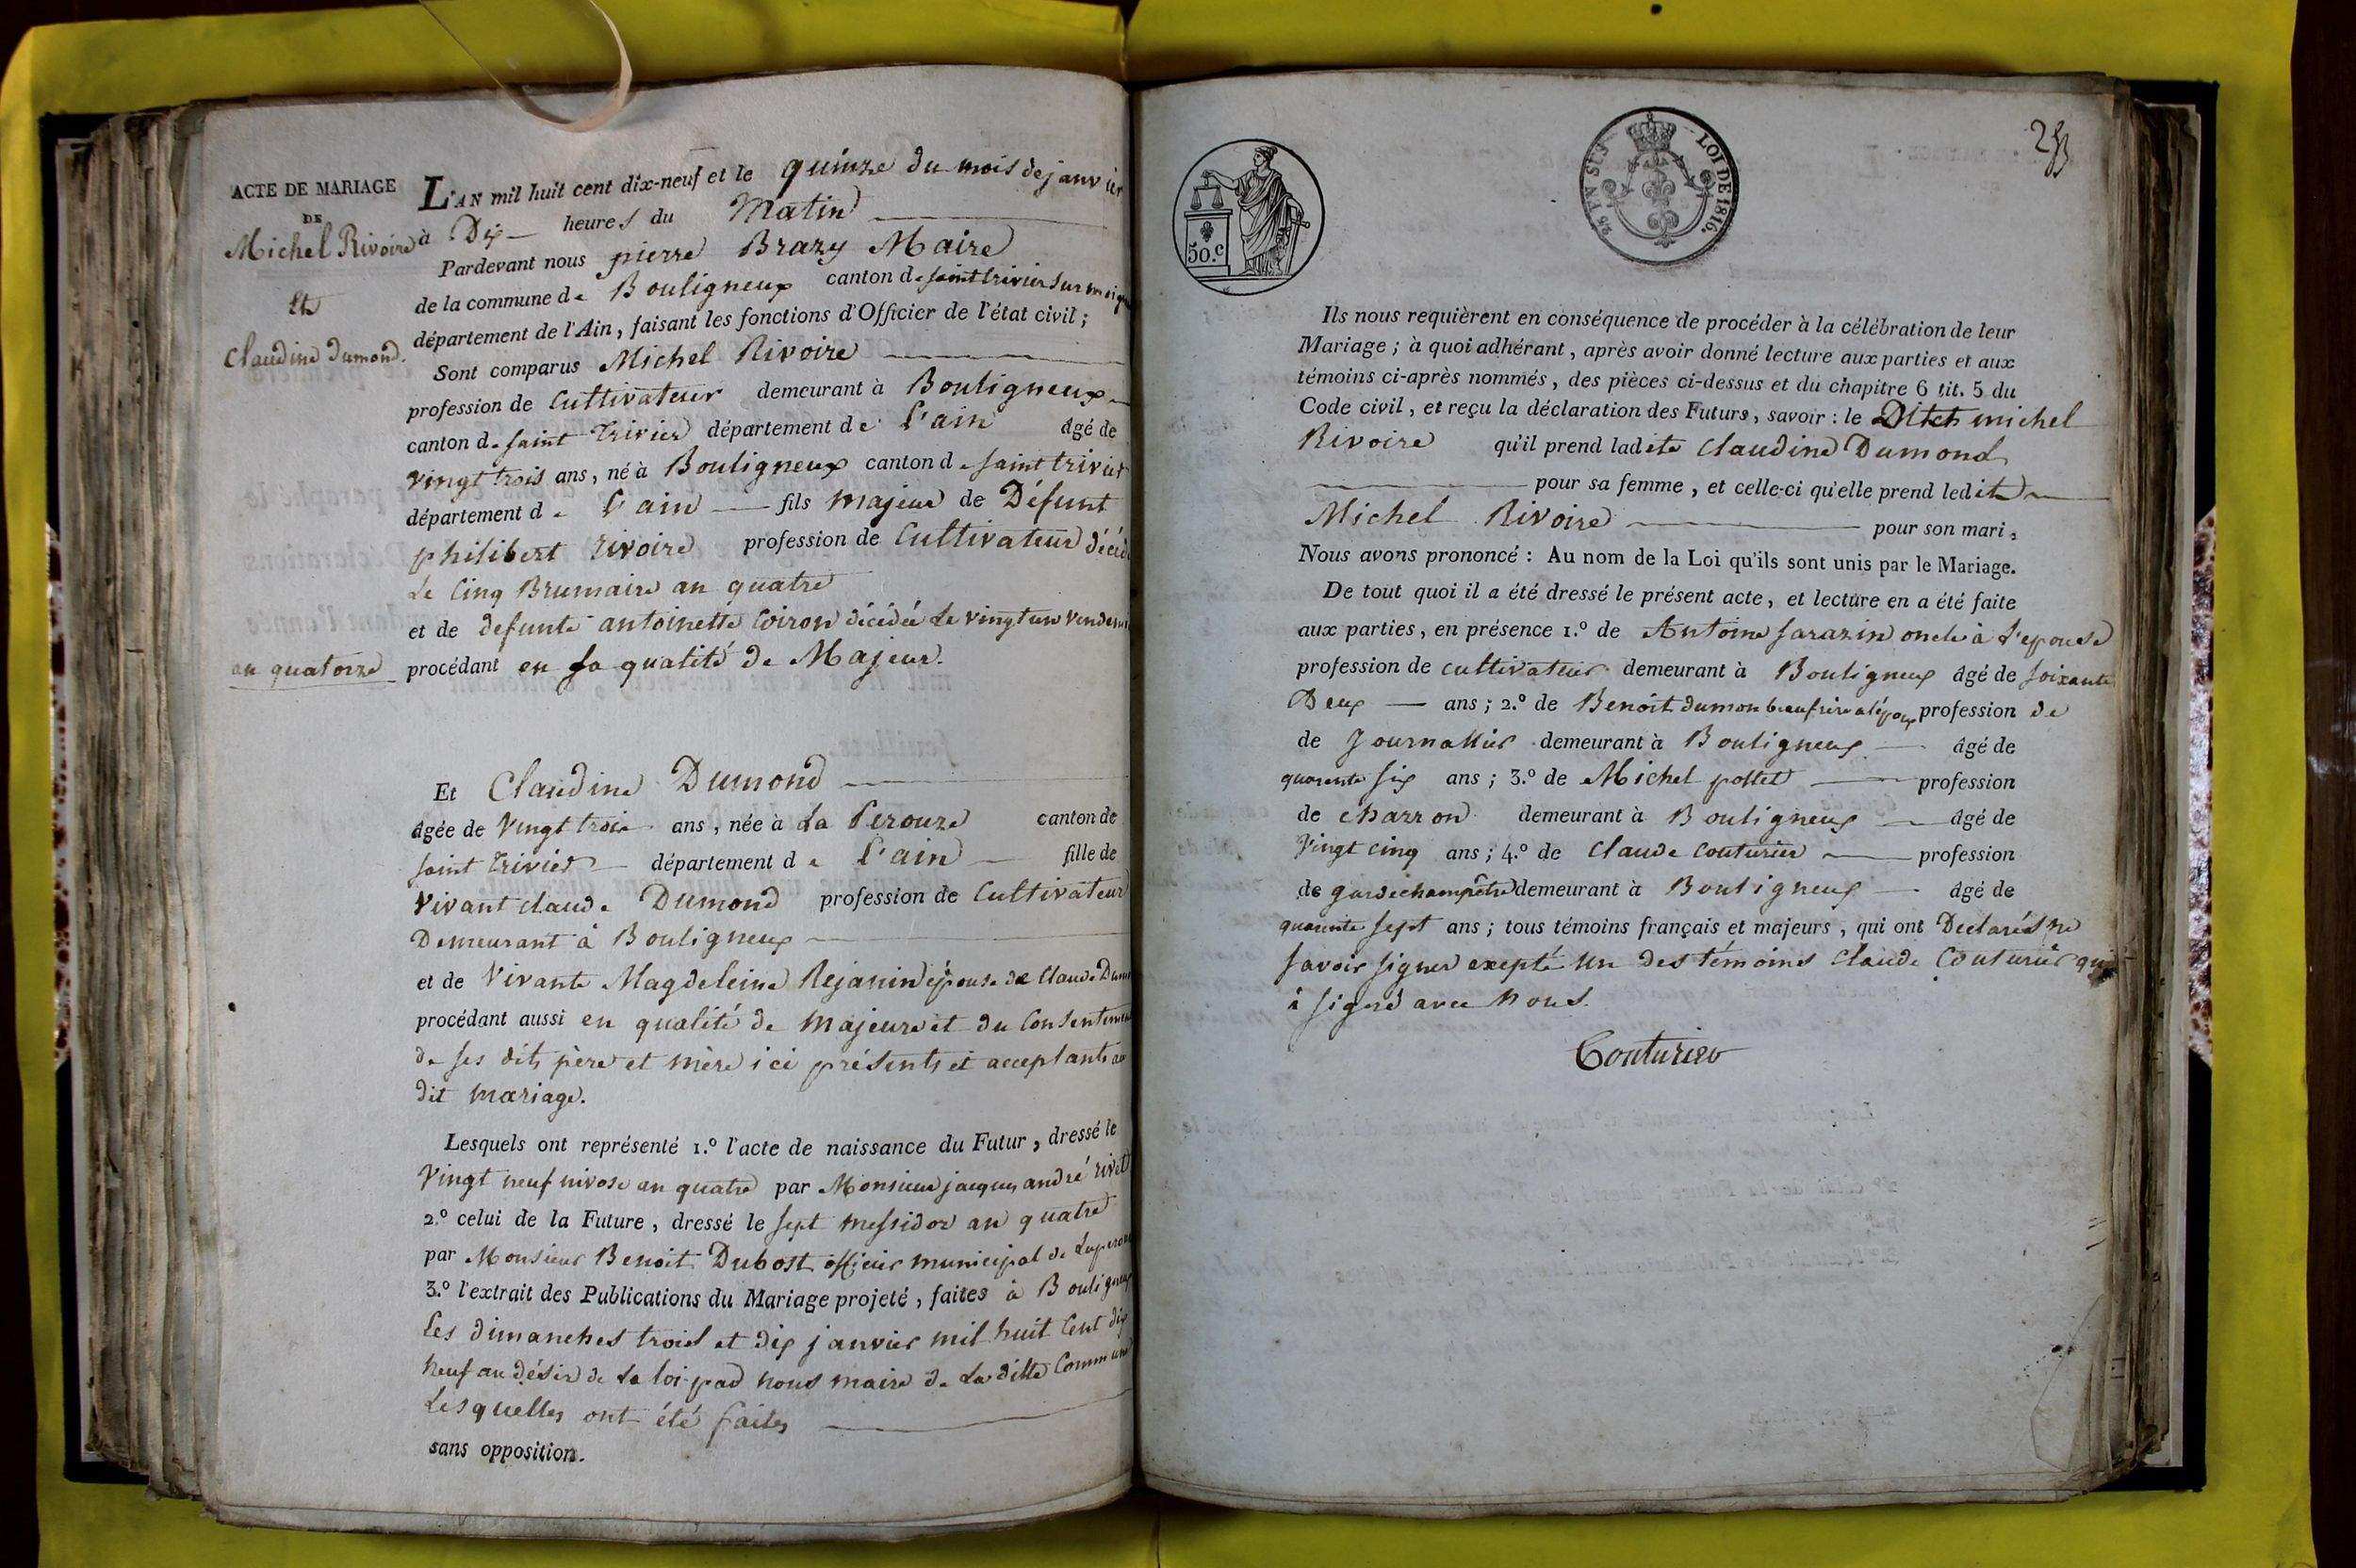 ACTE DE MARIAGE
DE
Michel Rivoire
Et
Claudine Dumond.
L'AN mil huit cent dix-neuf et le quinze du mois de janvier
à Dix heures du Matin
Pardevant nous pierre Brazy Maire
de la commune de Bouligneux canton de saint trivier sur
département de l'Ain, faisant les fonctions d'Officier de l'état civil;
Sont comparus Michel Rivoire
profession de Cultivateur demeurant à Bouligneux
canton de saint trivier département de L'ain âgé de
vingt trois ans, né à Bouligneux canton de saint trivier
département de L'ain fils majeur de Défunt
philibert rivoire profession de Cultivateur décédé
Le Cinq Brumaire an quatre
et de defunte antoinette Coiron décédée Le vingt un
an quatorze
procédant en sa qualité de Majeur.
Et Claudine Dumond
âgée de vingt trois ans, née à La Perouze canton de
saint trivier département de L'ain fille de
vivant claude Dumond profession de Cultivateur
Demeurant à Bouligneux
et de vivante Magdeleine Rejanin épouse de Claude
procédant aussi en qualité de majeure et du Consentement
de ses dits père et mère ici présents et acceptants au
dit mariage.
Lesquels ont représenté 1.º l'acte de naissance du Futur, dressé le
vingt neuf nivose an quatre par Monsieur jacques andré rivet
2.º celui de la Future, dressé le sept messidor an quatre
par Monsieur Benoit Dubost officier municipal de
3.º l'extrait des Publications du Mariage projeté, faites à Bouligneux
Les dimanches trois et dix janvier mil huit Cent dix
neuf au désir de la loi par nous maire de La ditte Commune
Lesquelles ont été faites
sans opposition.
50.C
LOI DE 1816.
Ils nous requièrent en conséquence de procéder à la célébration de leur
Mariage; à quoi adhérant, après avoir donné lecture aux parties et aux
témoins ci-après nommés, des pièces ci-dessus et du chapitre 6 tit. 5 du
Code civil, et reçu la déclaration des Futurs, savoir: le michel
Rivoire qu'il prend ladite Claudine Dumond
pour sa femme, et celle-ci qu'elle prend ledit
Michel Rivoire pour son mari,
Nous avons prononcé: Au nom de la Loi qu'ils sont unis par le Mariage.
De tout quoi il a été dressé le présent acte, et lecture en a été faite
aux parties, en présence 1.º de Antoine sarazin oncle à L'epouse
profession de cultivateur demeurant à Bouligneux âgé de soixante
Deux ans; 2.º de Benoit dumon beaufrère a profession de
de Journallier demeurant à Bouligneux âgé de
quarente six ans; 3.º de Michel pollet profession
de charron demeurant à Bouligneux âgé de
vingt cinq ans; 4.º de Claude Couturier profession
de gardechampêtre demeurant à Bouligneux âgé de
quarente sept ans; tous témoins français et majeurs, qui ont Declarés ne
savoir signer exepté un des témoins Claude Couturier qui
à signé avec nous.
Couturier